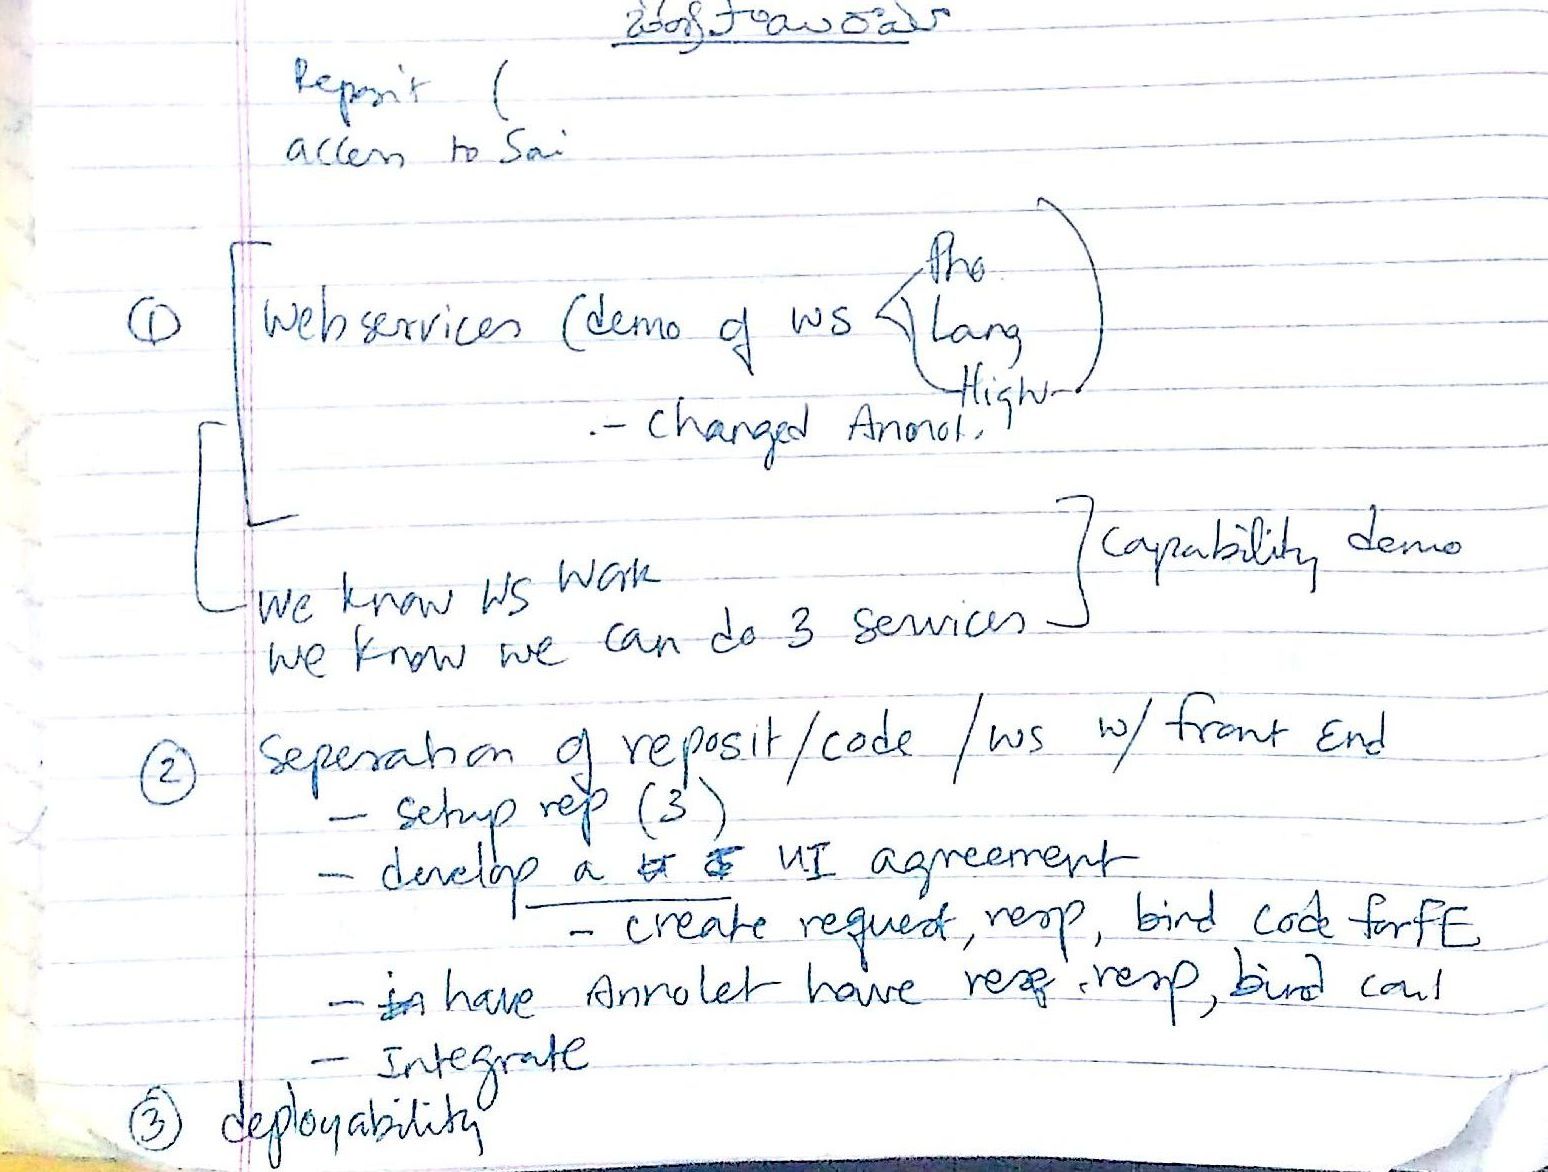 Reposit (
access to Sai
① Webservices (demo of WS
Pho
Lang
High
- changed Annot.
we know WS Work
we know we can do 3 services
capability demo
② Seperation of reposit/code /ws w/ front End
- setup rep (3)
- develop a UI agreement
- create request, resp, bind code for FE
- have Annolet have req, resp, bind
- Integrate
③ deployability